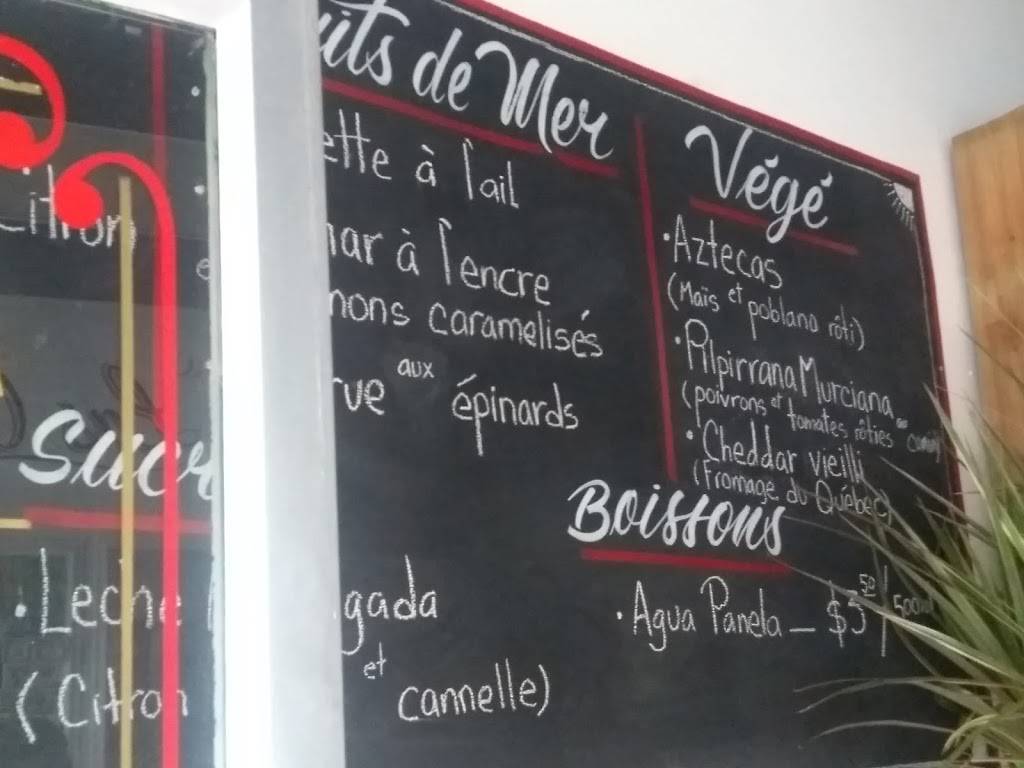 uits de Mer
ette à l'ail
mar à l'encre
nons caramelisés
rve aux épinards
Végé
·Aztecas
(Maïs et poblano rôti)
·Pipirrana Murciana
(poivrons et tomates rôties au cumin)
·Cheddar vieilli
(Fromage du Québec)
Boissons
·Agua Panela - $3.50/500ml
Citron
Sucr
·Leche
gada
(Citron et cannelle)